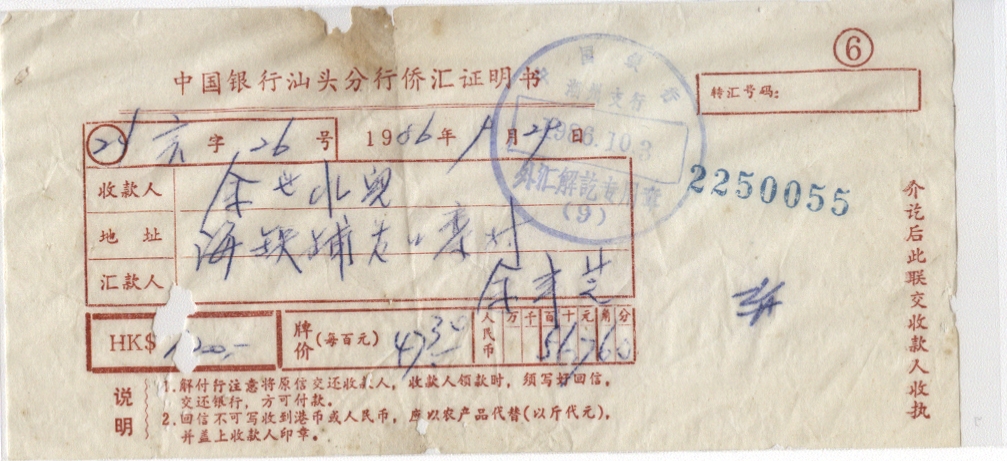 ⑥
中国银行汕头分行侨汇证明书
特汇号码:
字 26 号 1986年 月 29日
中国银行
潮州支行
1986.10.3
外汇解讫专用章
(9)
2250055
收款人 余
地址 海 村
汇款人 余 芝
HK$ 1200.-
牌价(每百元) 47.30
人民币 万千百十元角分 567 60
说明
1.解付行注意将原信交还收款人,收款人领款时,须写好回信,
交还银行,方可付款。
2.回信不可写收到港币或人民币,应以农产品代替(以斤代元),
并盖上收款人印章。
介讫后此联交收款人收执